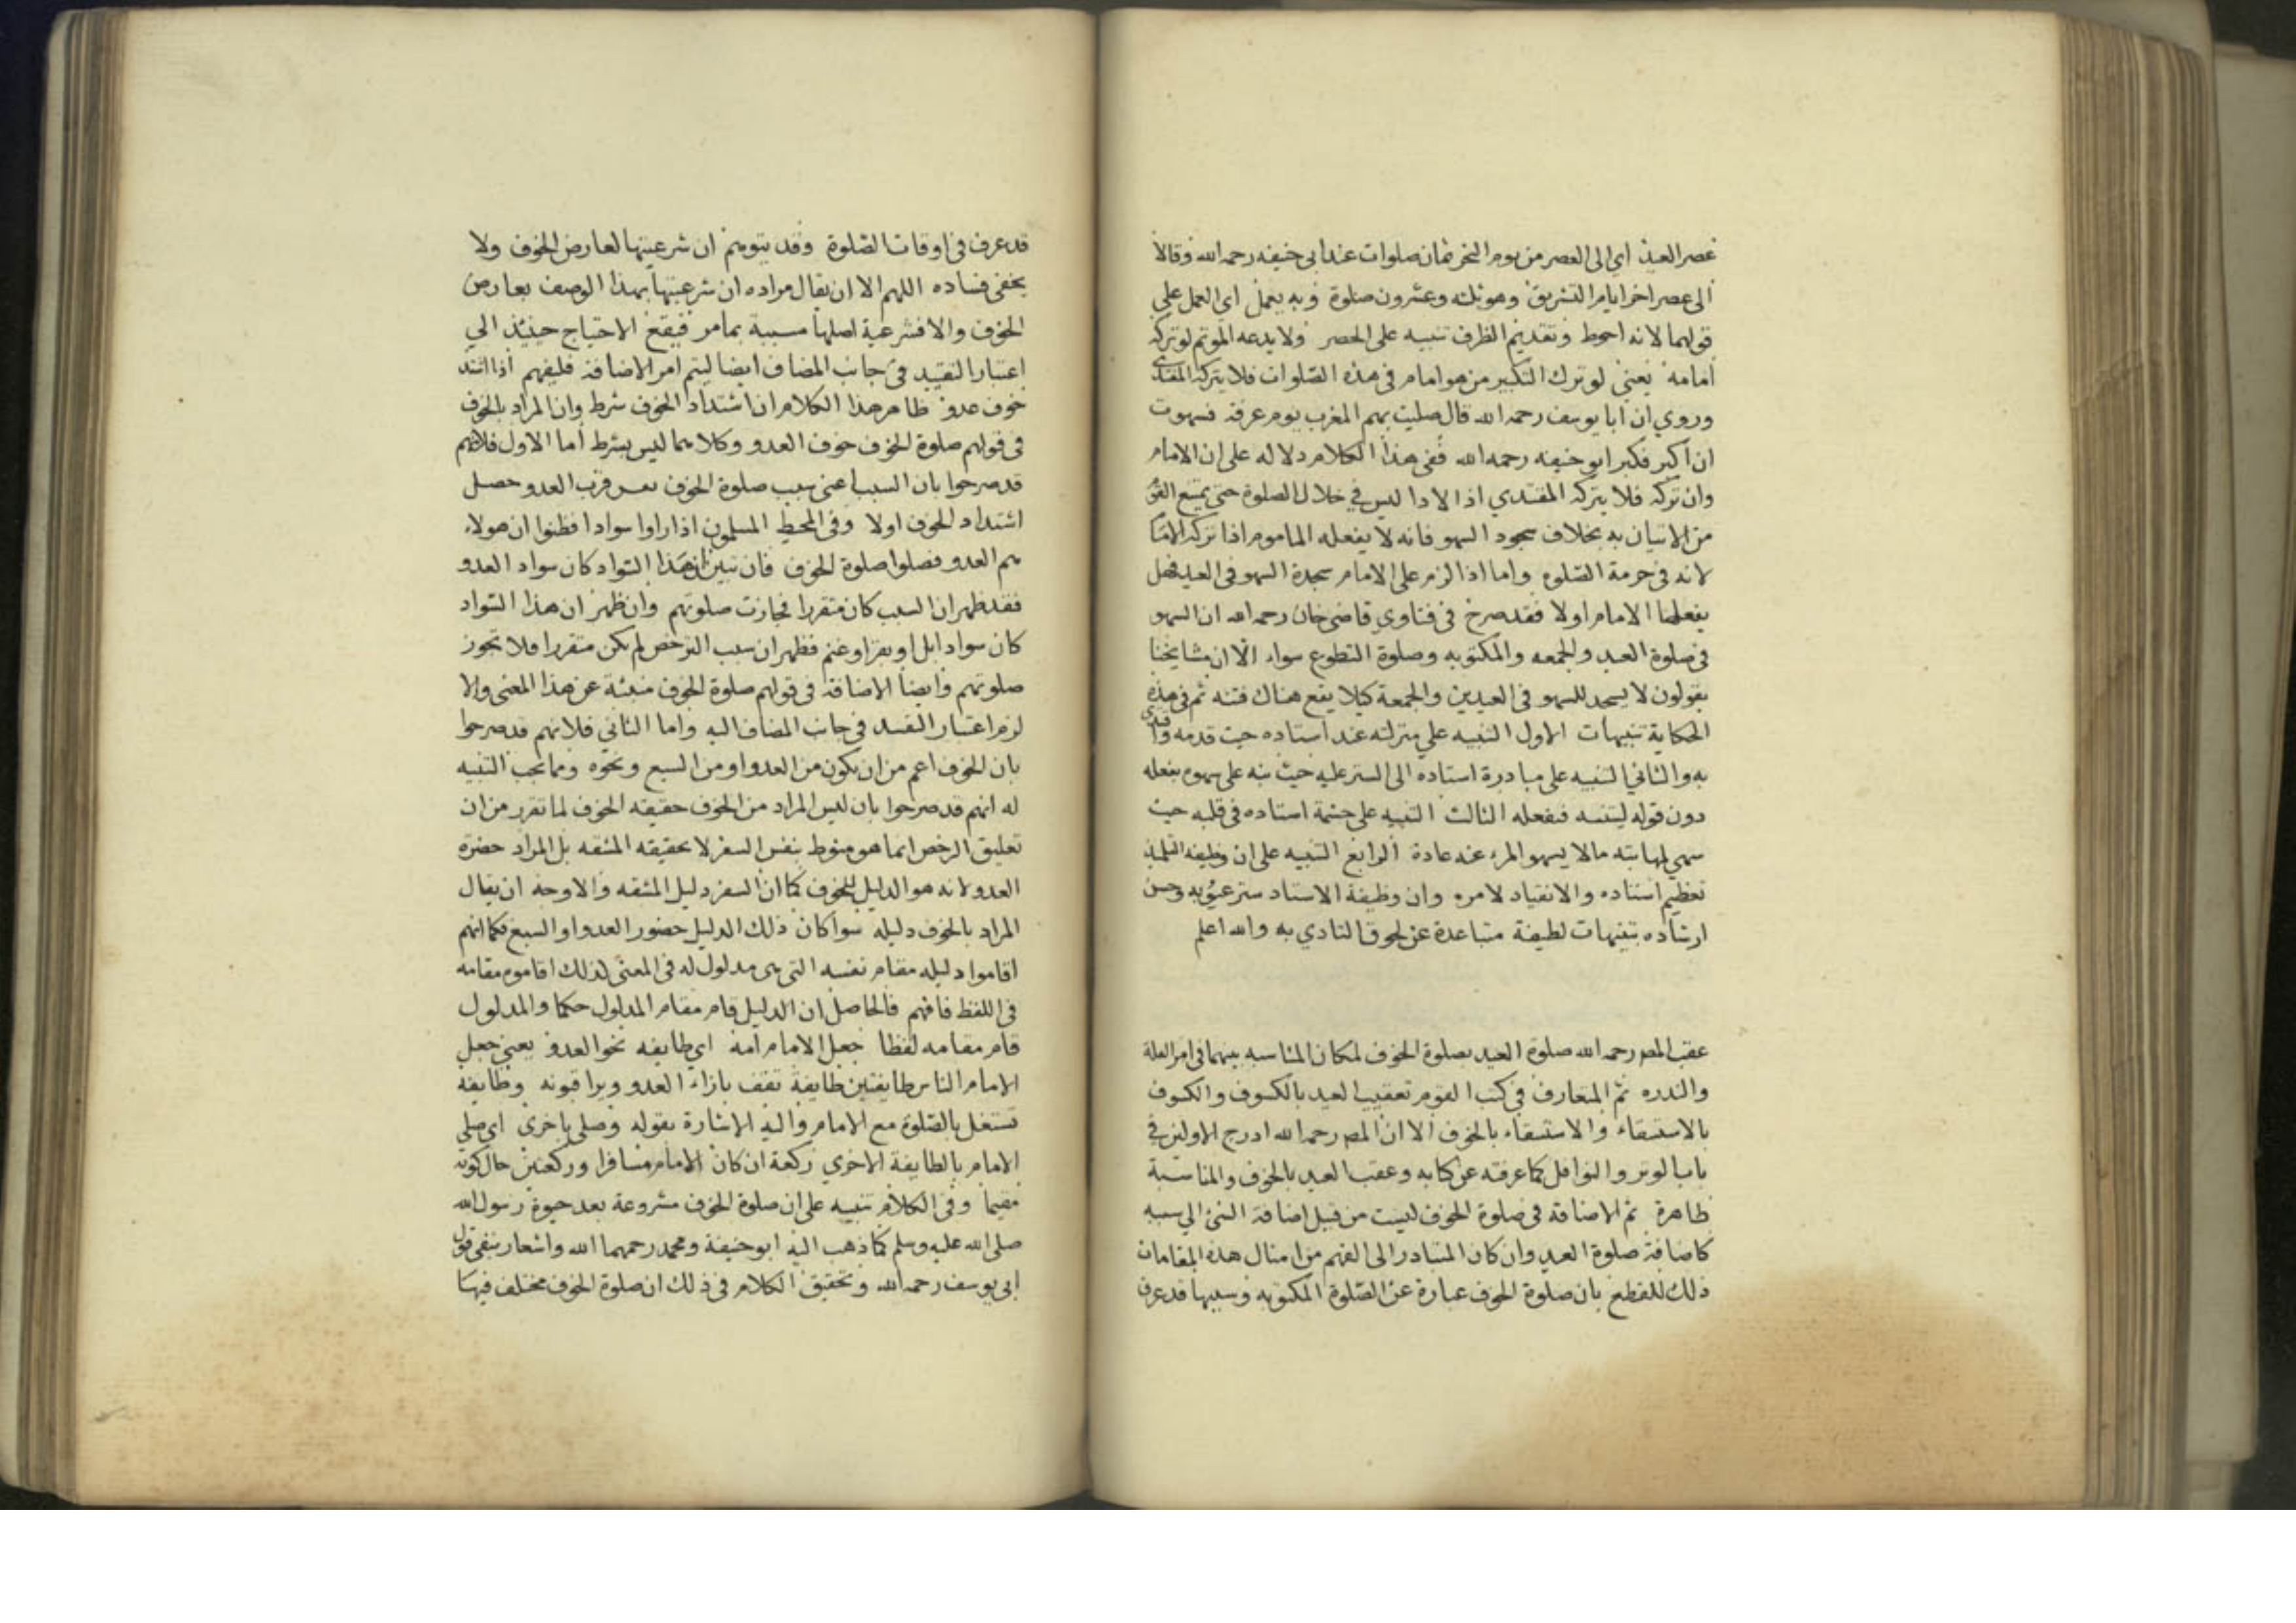 عصر العيد اي الى العصر من يوم النحر ثمان صلوات عند ابي حنيفه رحمه الله وقالا
الى عصر اخر ايام التشريق وهو ثلثه وعشرون صلوة وبه يعمل اي العمل على
قولهما لانه احوط وتقديم الظرف تنبيه على الحصر ولا يدعه الموتم لو تركه
امامه يعني لو ترك التكبير من هو امام في هذه الصلوات فلا يتركه المقتدى
وروي ان ابا يوسف رحمه الله قال صليت بهم المغرب يوم عرفة فسهوت
ان اكبر فكبر ابو حنيفه رحمه الله ففى هذا الكلام دلاله على ان الامام
وان تركه فلا يتركه المقتدي اذ الادا ليس في خلال الصلوة حتى يمتنع
من الاتيان به بخلاف سجود السهو فانه لا يفعله الماموم اذا تركه الامام
لانه في حرمة الصلوه واما اذا لزم على الامام سجدة السهو في العيد فهل
يفعلها الامام اولا فقد صرح في فتاوي قاضى خان رحمه الله ان السهو
في صلوة العيد والجمعه والمكتوبه وصلوة التطوع سواء الا ان مشايخنا
يقولون لا يسجد للسهو في العيدين والجمعة كيلا يقع هناك فتنه ثم في هذه
الحكاية تنبيهات الاول التنبيه علي منزلته عند استاده حيث قدمه واقتدى
به والثاني التنبيه على مبادرة استاده الى الستر عليه حيث نبه على سهوه بفعله
دون قوله ليتنبه فيفعله الثالث التنبيه على حشمة استاده في قلبه حيث
سهي لمهابته مالا يسهو المرء عنه عادة الرابع التنبيه على ان وظيفه التلميذ
تعظيم استاده والانقياد لامره وان وظيفة الاستاد ستر عيوبه وحسن
ارشاده بتنبيهات لطيفة متباعدة عن لحوق التاذي به والله اعلم
عقب المص رحمه الله صلوة العيد بصلوة الخوف لمكان المناسبه بينهما في امر القلة
والندره ثم المتعارف في كتب القوم تعقيب العيد بالكسوف والكسوف
بالاستسقاء والاستسقاء بالخوف الا ان المص رحمه الله ادرج الاولين في
باب الوتر والنوافل كما عرفته عن كتابه وعقب العيد بالخوف والمناسبة
ظاهرة ثم الاضافة في صلوة الخوف ليست من قبيل اضافة الشئ الي سببه
كاضافة صلوة العيد وان كان المتبادر الى الفهم من امثال هذه المقامات
ذلك للقطع بان صلوة الخوف عبارة عن الصلوة المكتوبه وسببها قد عرف
قد عرف في اوقات الصلوة وقد يتوهم ان شرعيتها لعارض الخوف ولا
يخفى فساده اللهم الا ان يقال مراده ان شرعيتها بهذا الوصف بعارض
الخوف والا فشرعية اصلها مسببة بما مر فيقع الاحتياج حينئذ الي
اعتبار التقييد في جانب المضاف ايضا ليتم امر الاضافة فليفهم اذا اشتد
خوف عدو ظاهر هذا الكلام ان اشتداد الخوف شرط وان المراد بالخوف
في قولهم صلوة الخوف خوف العدو وكلاهما ليس بشرط اما الاول فلانهم
قد صرحوا بان السبب اعنى سبب صلوة الخوف نفس قرب العدو حصل
اشتداد الخوف اولا وفى المحيط المسلمون اذا راوا سوادا فظنوا ان هولاء
هم العدو فصلوا صلوة الخوف فان تبين ان هذا السواد كان سواد العدو
فقد ظهر ان السبب كان متقررا فجازت صلوتهم وان ظهر ان هذا السواد
كان سواد ابل او بقر او غنم فظهر ان سبب الترخص لم يكن متقررا فلا تجوز
صلوتهم وايضا الاضافة في قولهم صلوة الخوف منبئة عن هذا المعنى والا
لزم اعتبار التقييد في جانب المضاف اليه واما الثاني فلانهم قد صرحوا
بان الخوف اعم من ان يكون من العدو او من السبع ونحوه ومما يجب التنبيه
له انهم قد صرحوا بان ليس المراد من الخوف حقيقه الخوف لما تقرر من ان
تعليق الرخص انما هو منوط بنفس السفر لا بحقيقه المشقه بل المراد حضرة
العدو لانه هو الدليل للخوف كما ان السفر دليل المشقه والاوجه ان يقال
المراد بالخوف دليله سوا كان ذلك الدليل حضور العدو او السبع فكما انهم
اقاموا دليله مقام نفسه التى هى مدلول له في المعنى لذلك اقاموه مقامه
في اللفظ فافهم فالحاصل ان الدليل قام مقام المدلول حكما والمدلول
قام مقامه لفظا جعل الامام امة اي طايفه نحو العدو يعني جعل
الامام الناس طايفتين طايفة تقف بازاء العدو ويراقبونه وطايفه
تشتغل بالصلوة مع الامام واليه الاشارة بقوله وصلى باخرى اي صلى
الامام بالطايفة الاخري ركعة ان كان الامام مسافرا وركعتين حال كونه
مقيما وفى الكلام تنبيه على ان صلوة الخوف مشروعة بعد حيوة رسول الله
صلى الله عليه وسلم كما ذهب اليه ابو حنيفة ومحمد رحمهما الله واشعار بنفي قول
ابي يوسف رحمه الله وتحقيق الكلام في ذلك ان صلوة الخوف مختلف فيها